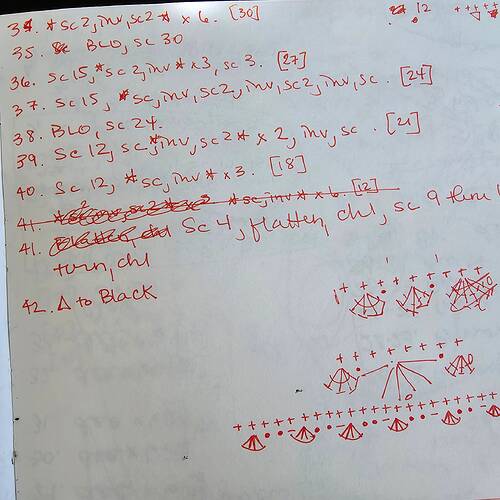 34. *sc2, inv, sc2* x 6. [30]
12
35. BLO, sc 30
36. sc15, *sc2, inv* x3, sc3. [27]
37. sc15, *sc, inv, sc2, inv, sc2, inv, sc. [24]
38. BLO, sc 24.
39. sc12, sc, *inv, sc2* x 2, inv, sc. [21]
40. sc 12, *sc, inv* x3. [18]
41. *sc, inv* x 6. [12]
41. sc 4, flatten, ch1, sc 9 thru
turn, ch1
42. Δ to Black